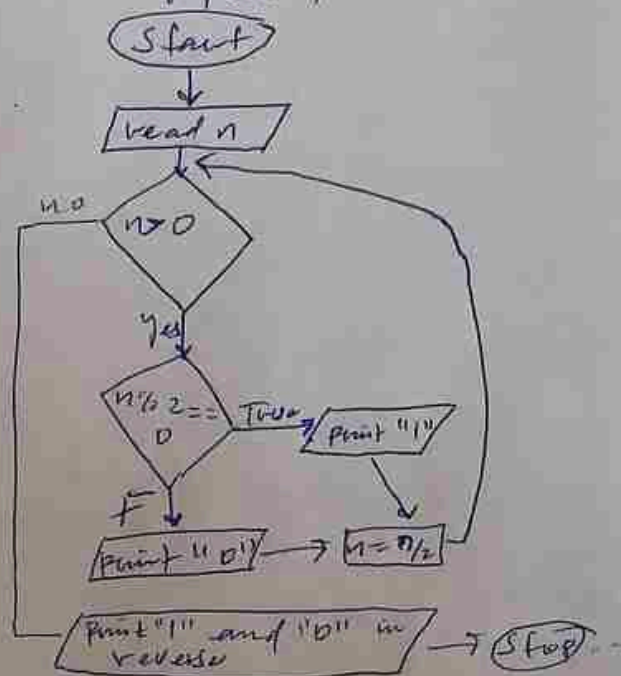 Start
read n
n>0
no
Yes
n%2==
0
True
print "1"
F
print "0"
n=n/2
print "1" and "0" in
reverse
Stop